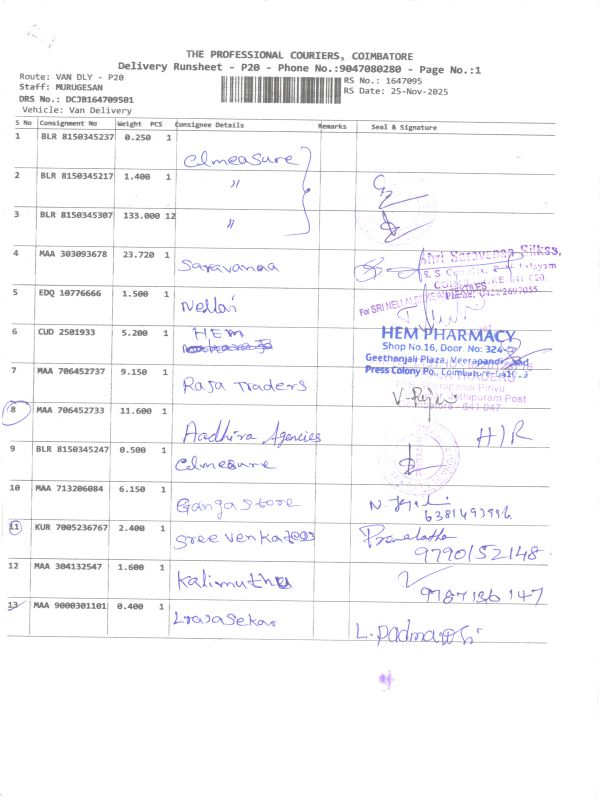 THE PROFESSIONAL COURIERS, COIMBATORE
Delivery Runsheet - P20 - Phone No.:9047080280 - Page No.:1
Route: VAN DLY - P20
RS No.: 1647095
Staff: MURUGESAN
RS Date: 25-Nov-2025
DRS No.: DCJB164709501
Vehicle: Van Delivery
S No Consignment No Weight PCS Consignee Details Remarks Seal & Signature
1 BLR 8150345237 0.250 1 Elmeasure
2 BLR 8150345217 1.400 1 "
3 BLR 8150345307 133.000 12 "
4 MAA 303093678 23.720 1 Saravanaa
Shri Saravanaa Silkss,
5 EDQ 10776666 1.500 1 Nellai
6 CUD 2501933 5.200 1 HEM
HEM PHARMACY
Shop No.16, Door. No: 324-
Geethanjali Plaza, Veerapandi
Press Colony Po., Coimbatore-
7 MAA 706452737 9.150 1 Raja Traders
V-Raja
8 MAA 706452733 11.600 1 Aadhira Agencies H/R
9 BLR 8150345247 0.500 1 Elmeasure
10 MAA 713206084 6.150 1 Ganga Store
11 KUR 7005236767 2.400 1 Sree Venkat
Premalatha
9790152148.
12 MAA 304132547 1.600 1 Kalimuthu
9787136147
13 MAA 9000301101 0.400 1
L. Padma